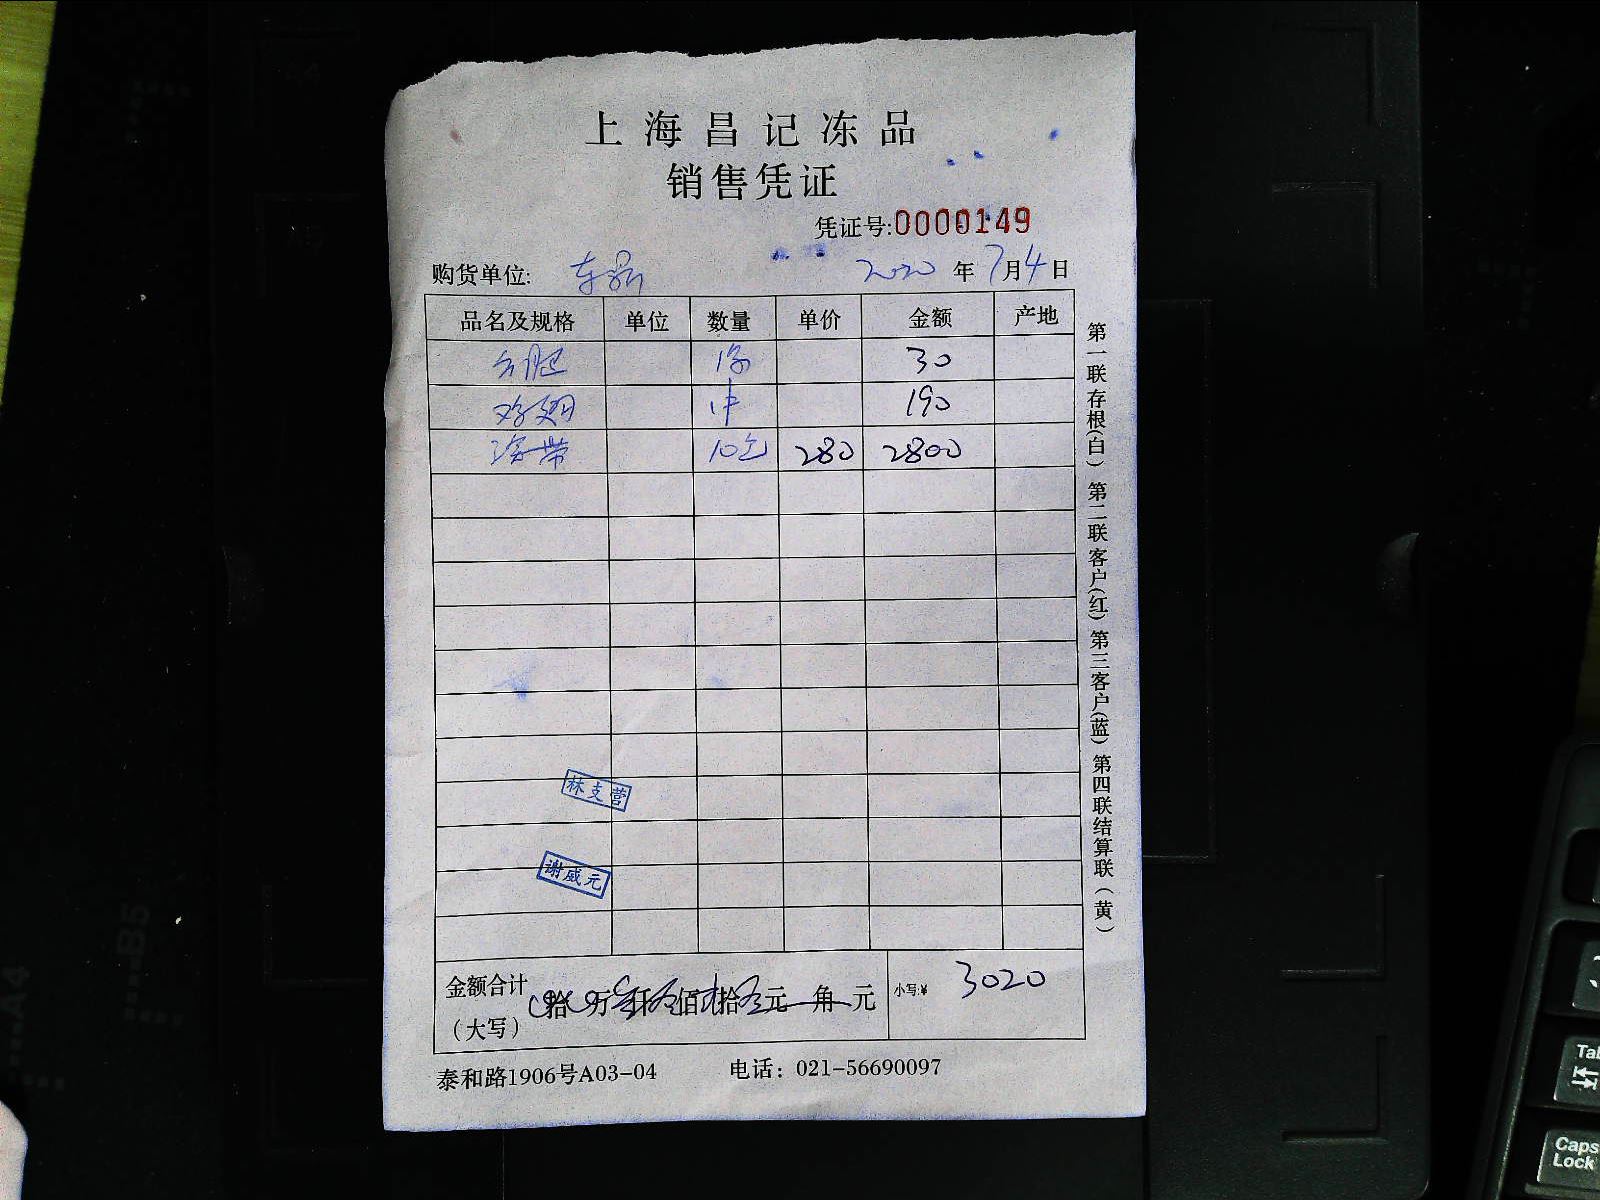 上海昌记冻品
销售凭证
凭证号:0000149
购货单位: 2020年7月4日
品名及规格 单位 数量 单价 金额 产地
30
鸡翅 1件 190
海带 10包 280 2800
林支营
谢威元
金额合计 拾 万叁仟零佰贰拾零元 角 元 小写:¥ 3020
（大写）
泰和路1906号A03-04 电话：021-56690097
第一联存根(白) 第二联客户(红) 第三客户(蓝) 第四联结算联(黄)
A4
B5
Tab
Caps Lock